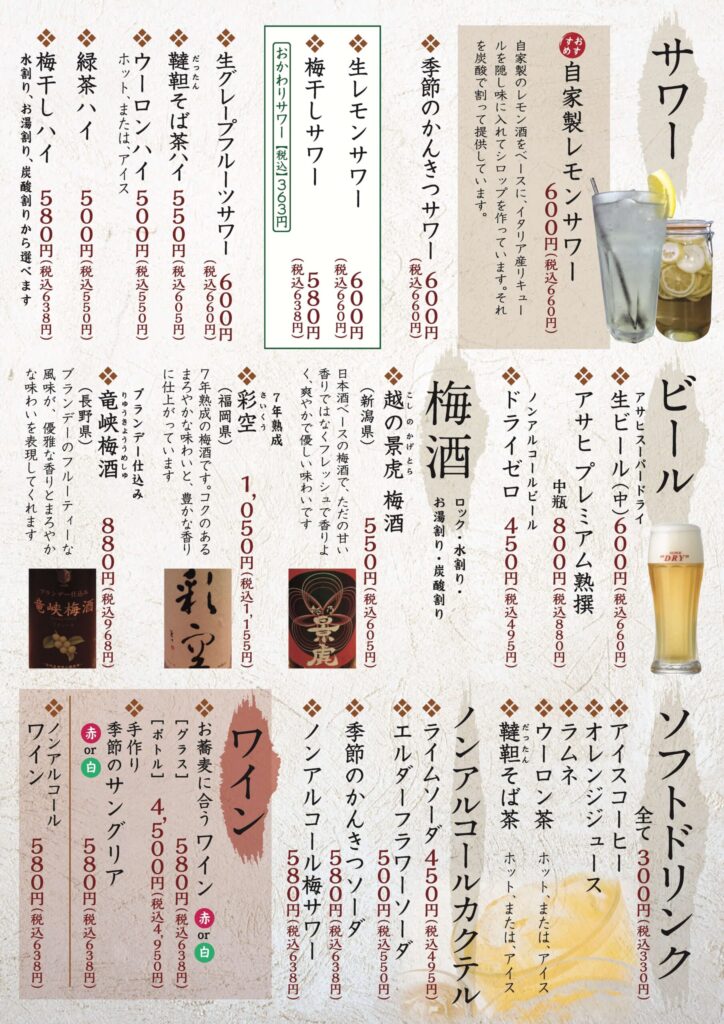 サワー
おすすめ
自家製レモンサワー
600円(税込660円)
自家製のレモン酒をベースに、イタリア産リキュー
ルを隠し味に入れてシロップを作っています。それ
を炭酸で割って提供しています。
季節のかんきつサワー
600円(税込660円)
生レモンサワー
600円(税込660円)
梅干しサワー
580円(税込638円)
おかわりサワー【税込】363円
生グレープフルーツサワー
600円(税込660円)
だったん
韃靼そば茶ハイ
550円(税込605円)
ウーロンハイ
500円(税込550円)
ホット、または、アイス
緑茶ハイ
500円(税込550円)
梅干しハイ
580円(税込638円)
水割り、お湯割り、炭酸割りから選べます
ビール
アサヒスーパードライ
生ビール(中)600円(税込660円)
アサヒ プレミアム熟撰
中瓶 800円(税込880円)
ノンアルコールビール
ドライゼロ 450円(税込495円)
DRY
梅酒
ロック・水割り・
お湯割り・炭酸割り
こしのかげとら
越の景虎 梅酒
(新潟県)
550円(税込605円)
日本酒ベースの梅酒で、ただの甘い
香りではなくフレッシュで香りよ
く、爽やかで優しい味わいです
景虎
7年熟成
さいくう
彩空
(福岡県)
1,050円(税込1,155円)
7年熟成の梅酒です。コクのある
まろやかな味わいと、豊かな香り
に仕上がっています
彩空
ブランデー仕込み
りゅうきょううめしゅ
竜峡梅酒
(長野県)
880円(税込968円)
ブランデーのフルーティーな
風味が、優雅な香りとまろやか
な味わいを表現してくれます
ブランデー仕込み
竜峡梅酒
ソフトドリンク
全て 300円(税込330円)
アイスコーヒー
オレンジジュース
ラムネ
ウーロン茶 ホット、または、アイス
だったん
韃靼そば茶 ホット、または、アイス
ノンアルコールカクテル
ライムソーダ 450円(税込495円)
エルダーフラワーソーダ
500円(税込550円)
季節のかんきつソーダ
580円(税込638円)
ノンアルコール梅サワー
580円(税込638円)
ワイン
お蕎麦に合う ワイン 赤or白
[グラス] 580円(税込638円)
[ボトル] 4,500円(税込4,950円)
手作り
季節のサングリア
赤or白 580円(税込638円)
ノンアルコール
ワイン 580円(税込638円)